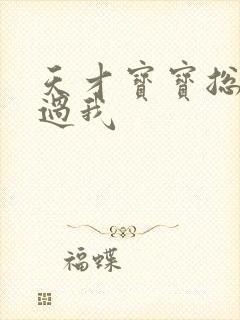 天才寶寶總
過我
福蝶